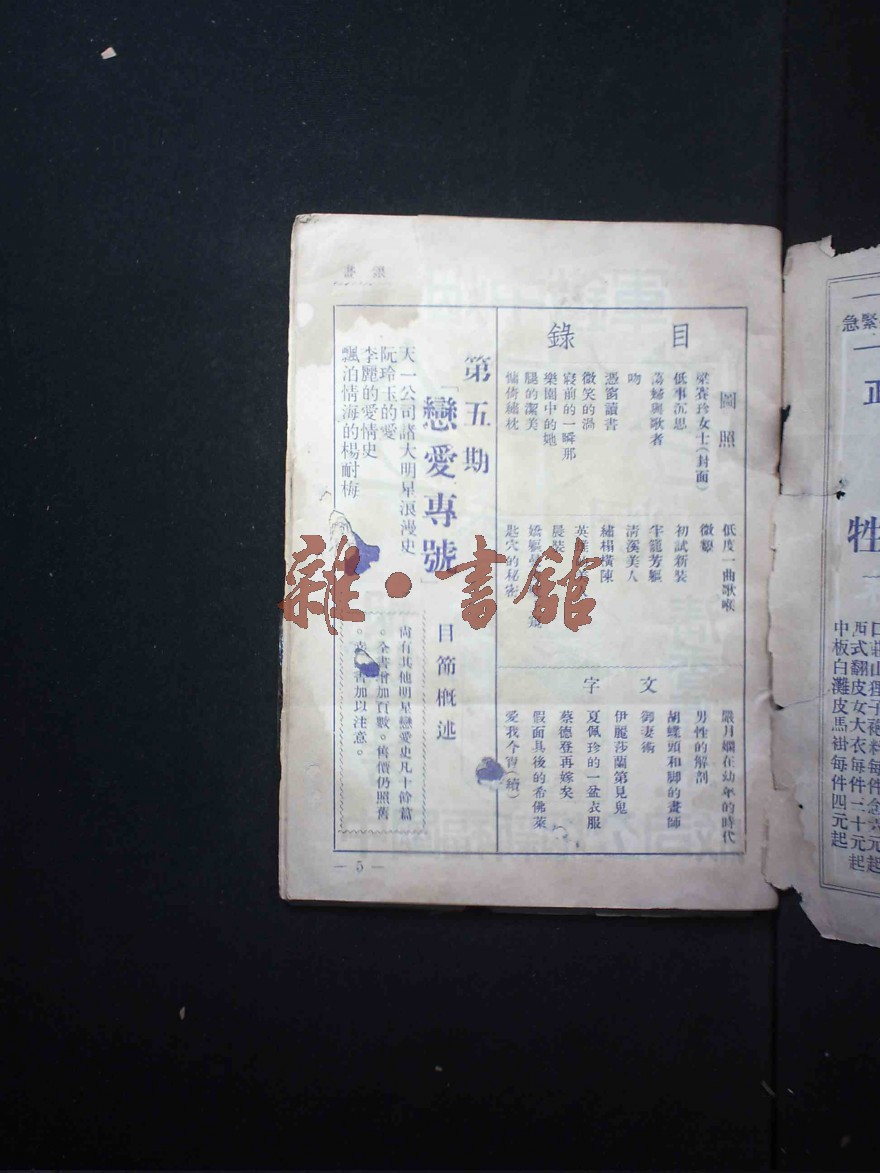 目錄
圖照
梁賽珍女士(封面)
低事沉思
蕩婦與歌者
吻
憑窗讀書
微笑的渦
寢前的一瞬那
樂園中的她
腿的潔美
慵倚繡枕
低度一曲歌喉
微顰
初試新裝
牢籠芳軀
清溪美人
繡榻橫陳
晨裝
匙穴的秘密
文字
嚴月嫻在幼年的時代
男性的解剖
胡蝶頭和脚的畫師
御妻術
伊麗莎蘭第見鬼
夏佩珍的一盆衣服
蔡德登再嫁矣
假面具後的希佛萊
愛我今宵(續)
第五期
「戀愛專號」
目節概述
天一公司諸大明星浪漫史
阮玲玉的愛
李麗的愛情史
飄泊情海的楊耐梅
尚有其他明星戀愛史凡十餘篇
。全書增加頁數。舊價仍照舊
加以注意。
— 5 —
雜·書館
緊急
西式翻皮女大衣每件二十元起
中板白灘皮馬褂每件四元起